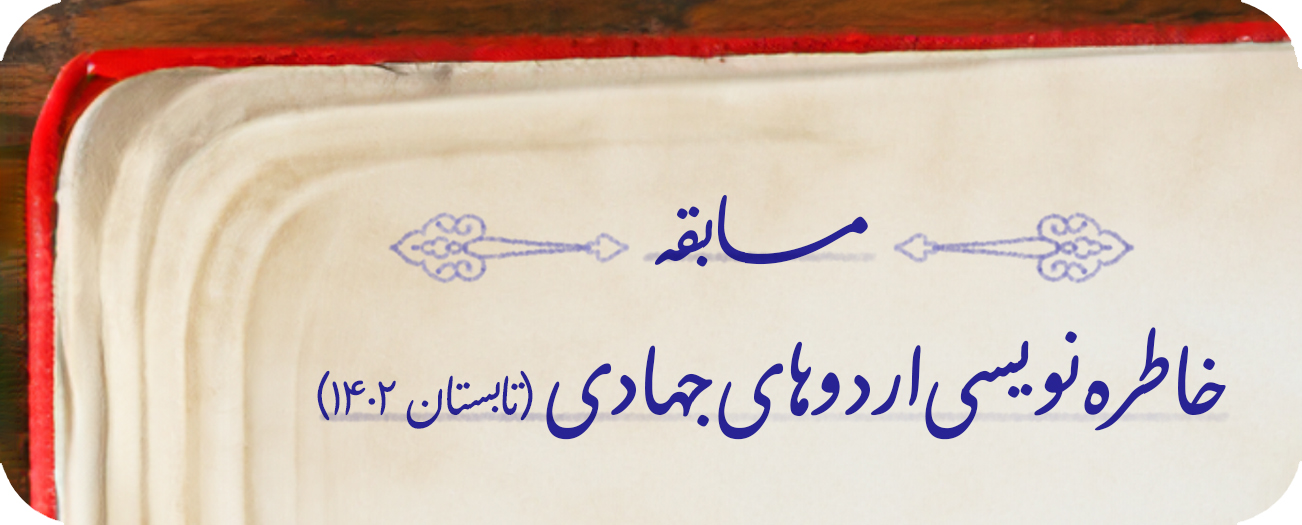 مسابقه
خاطره نویسی اردوهای جهادی (تابستان ۱۴۰۲)